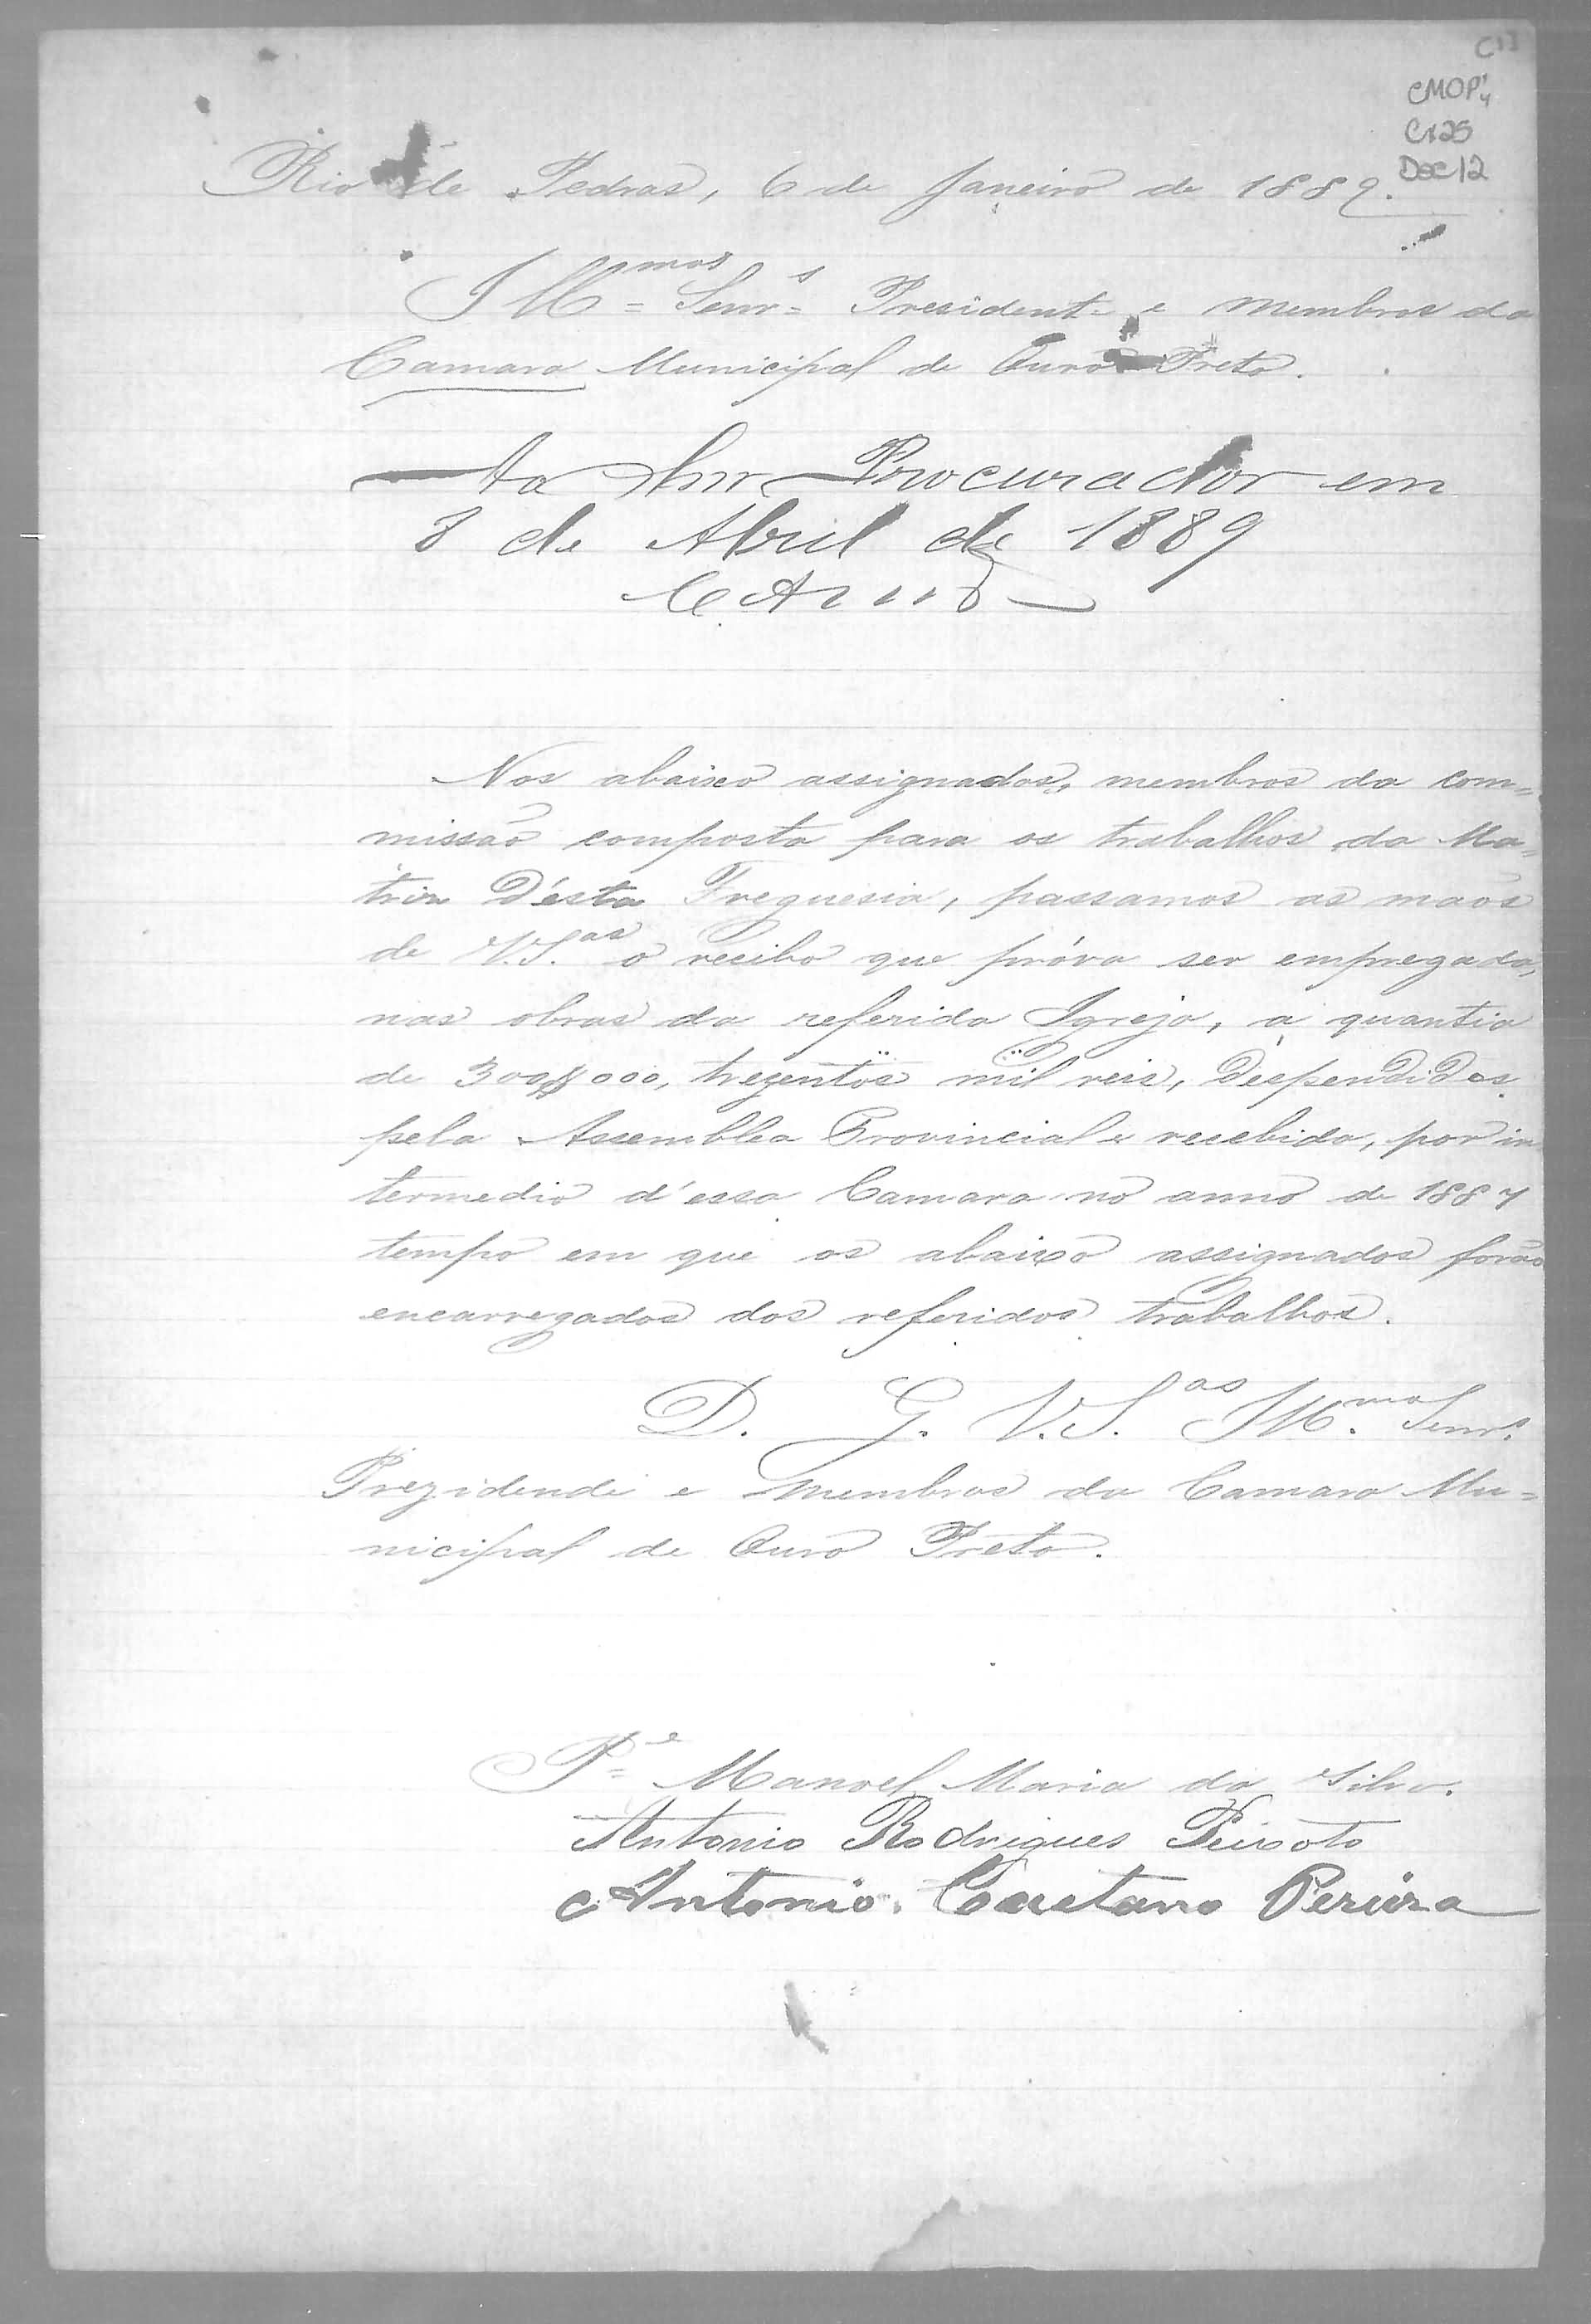 CMOP
Cx25
Doc 12
Rio de Pedras, 6 de Janeiro de 1889.
Illmos Senrs Presidente e membros da
Camara Municipal de Ouro Preto.
Ao Snr Procurador em
8 de Abril de 1889
Nos abaixo assignados, membros da com=
missão composta para os trabalhos da Ma=
triz D'ésta Freguesia, passamos as maõs
de V.S.as o recibo que próva ser empregada,
nas obras da referida Igreja, a quantia
de 300$000, trezentos mil reis, despendidos
pela Assemblea Provincial e recebida, por in
termedio d'essa Camara no anno de 1887
tempo em que os abaixo assignados forão
encarregados dos referidos trabalhos.
D. G. V.S.as Illmos Senrs
Prezidende e membros da Camara Mu=
nicipal de Ouro Preto.
Pe Manoel Maria da Silva.
Antonio Rodrigues Peixoto
Antonio Caetano Pereira